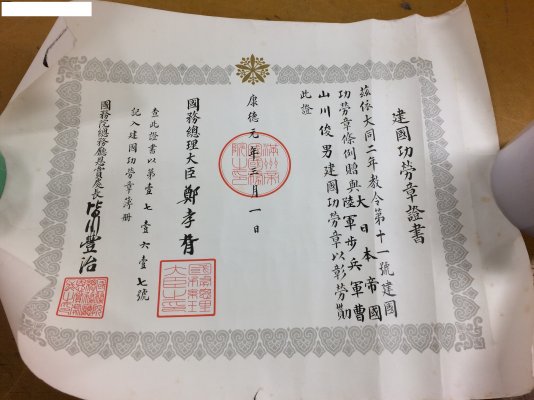 建國功勞章證書
茲依大同二年教令第十一號建國
功勞章條例贈與大日本帝國
陸軍步兵軍曹
山川俊男建國功勞章以彰勞勩
此證
康德元年三月一日
國務總理大臣 鄭孝胥
查此證書以第壹七壹六壹七號
記入建國功勞章簿冊
國務院總務廳恩賞處長 皆川豐治